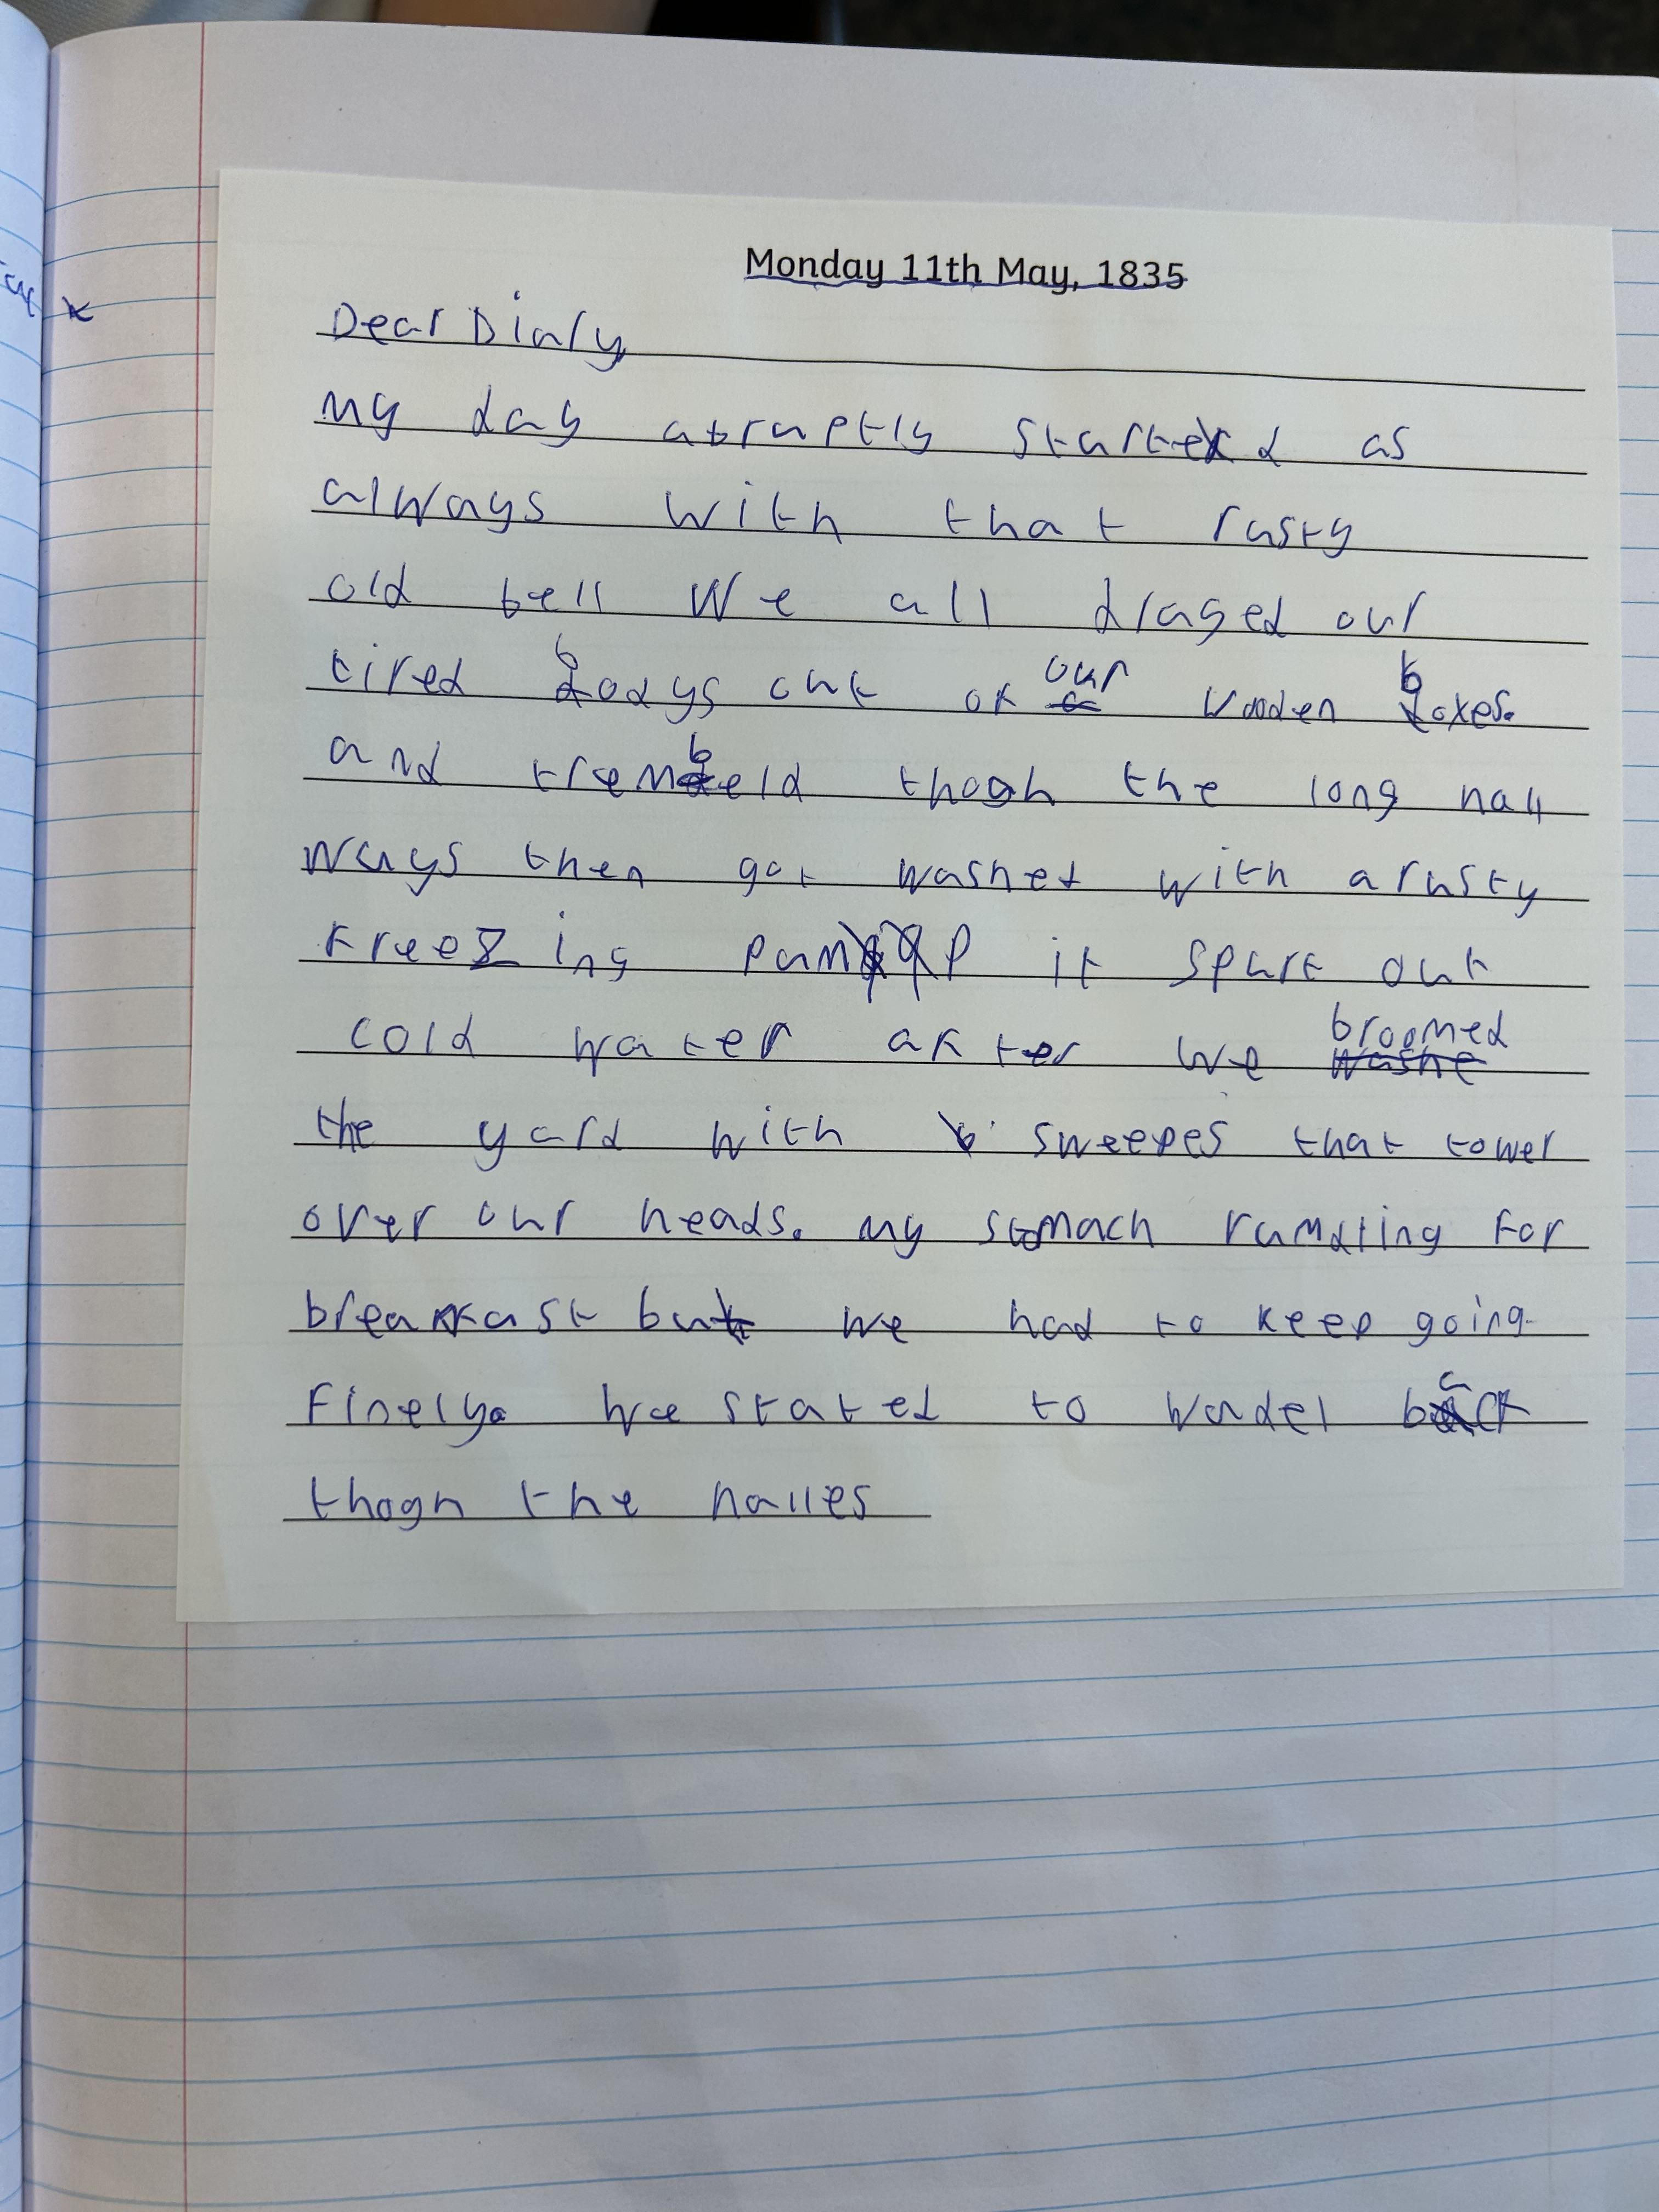 Monday 11th May, 1835
Dear Diary
My day abruptly started as
always with that rusty
old bell We all draged our
tired bodys out of our wooden boxes.
and trembeld thogh the long hall
ways then got washed with a rusty
freezing pump it spurt out
cold water after we broomed
the yard with sweepes that tower
over our heads. my stomach rumdling for
breakfast but we had to keep going.
Finely. we stated to wadel back
thogh the halles